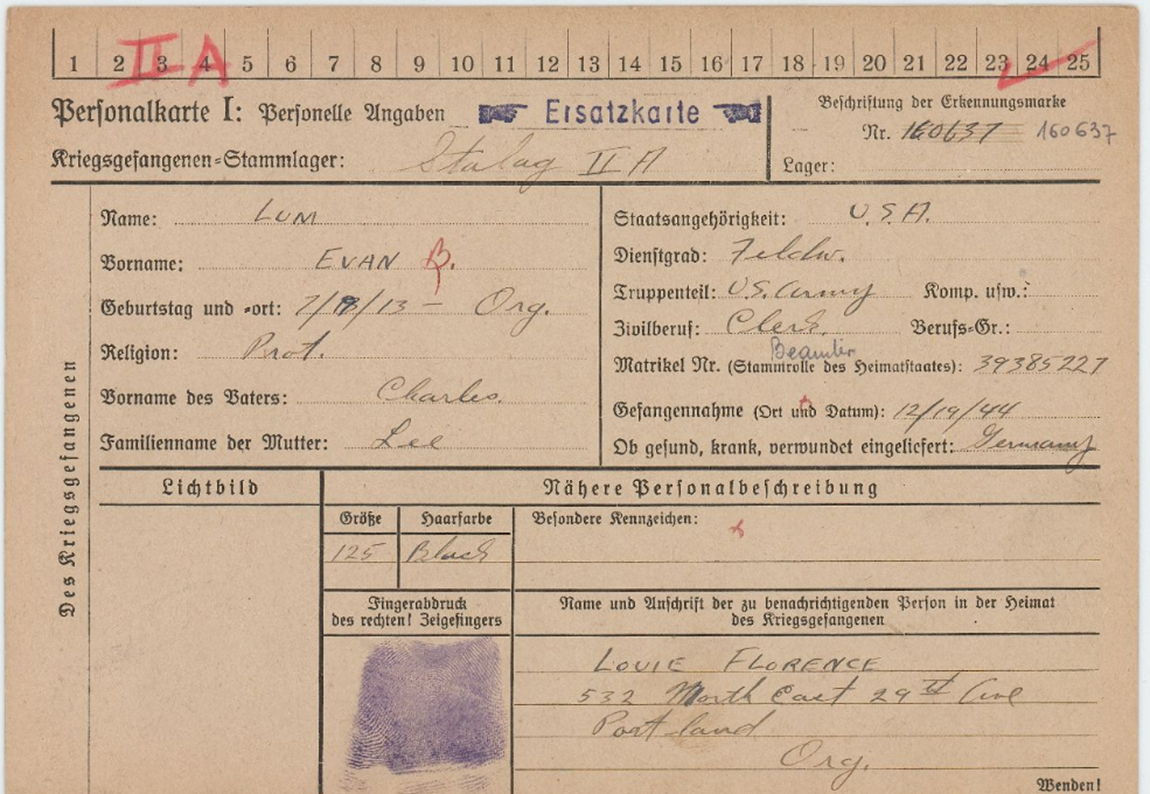 1 2 3 4 5 6 7 8 9 10 11 12 13 14 15 16 17 18 19 20 21 22 23 24 25
II A
Personalkarte I: Personelle Angaben
Ersatzkarte
Beschriftung der Erkennungsmarke
Nr. 160637 160637
Kriegsgefangenen-Stammlager: Stalag II A
Lager:
Des Kriegsgefangenen
Name: LUM
Vorname: EVAN B.
Geburtstag und -ort: 7/19/13 - Org.
Religion: Prot.
Vorname des Vaters: Charles.
Familienname der Mutter: Lee
Staatsangehörigkeit: U.S.A.
Dienstgrad: Feldw.
Truppenteil: U.S. Army Komp. usw.:
Zivilberuf: Clerk. Berufs-Gr.:
Beamter
Matrikel Nr. (Stammrolle des Heimatstaates): 39385227
Gefangennahme (Ort und Datum): 12/19/44
Ob gesund, krank, verwundet eingeliefert: Germany
Lichtbild
Nähere Personalbeschreibung
Größe Haarfarbe Besondere Kennzeichen:
125 Black
Fingerabdruck
des rechten! Zeigefingers
Name und Anschrift der zu benachrichtigenden Person in der Heimat
des Kriegsgefangenen
LOUIE FLORENCE
532 North East 29 Ave
Portland
Org.
Wenden!